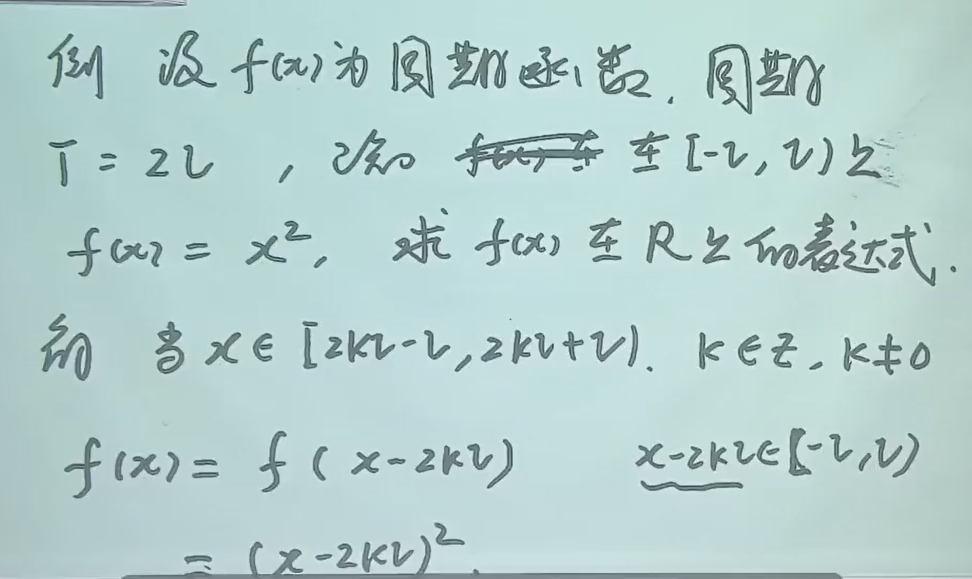 例 设 f(x) 为周期函数. 周期
T = 2l , 已知 在 [-l, l) 上
f(x) = x², 求 f(x) 在 R 上的表达式.
解 当 x ∈ [2kl-l, 2kl+l). k∈Z. k≠0
f(x) = f(x-2kl) x-2kl∈[-l, l)
= (x-2kl)².